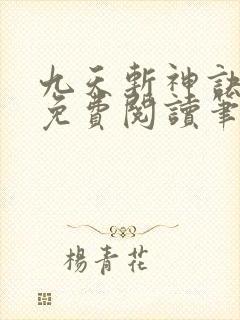 九天斬神訣
免費閱讀筆
楊青花